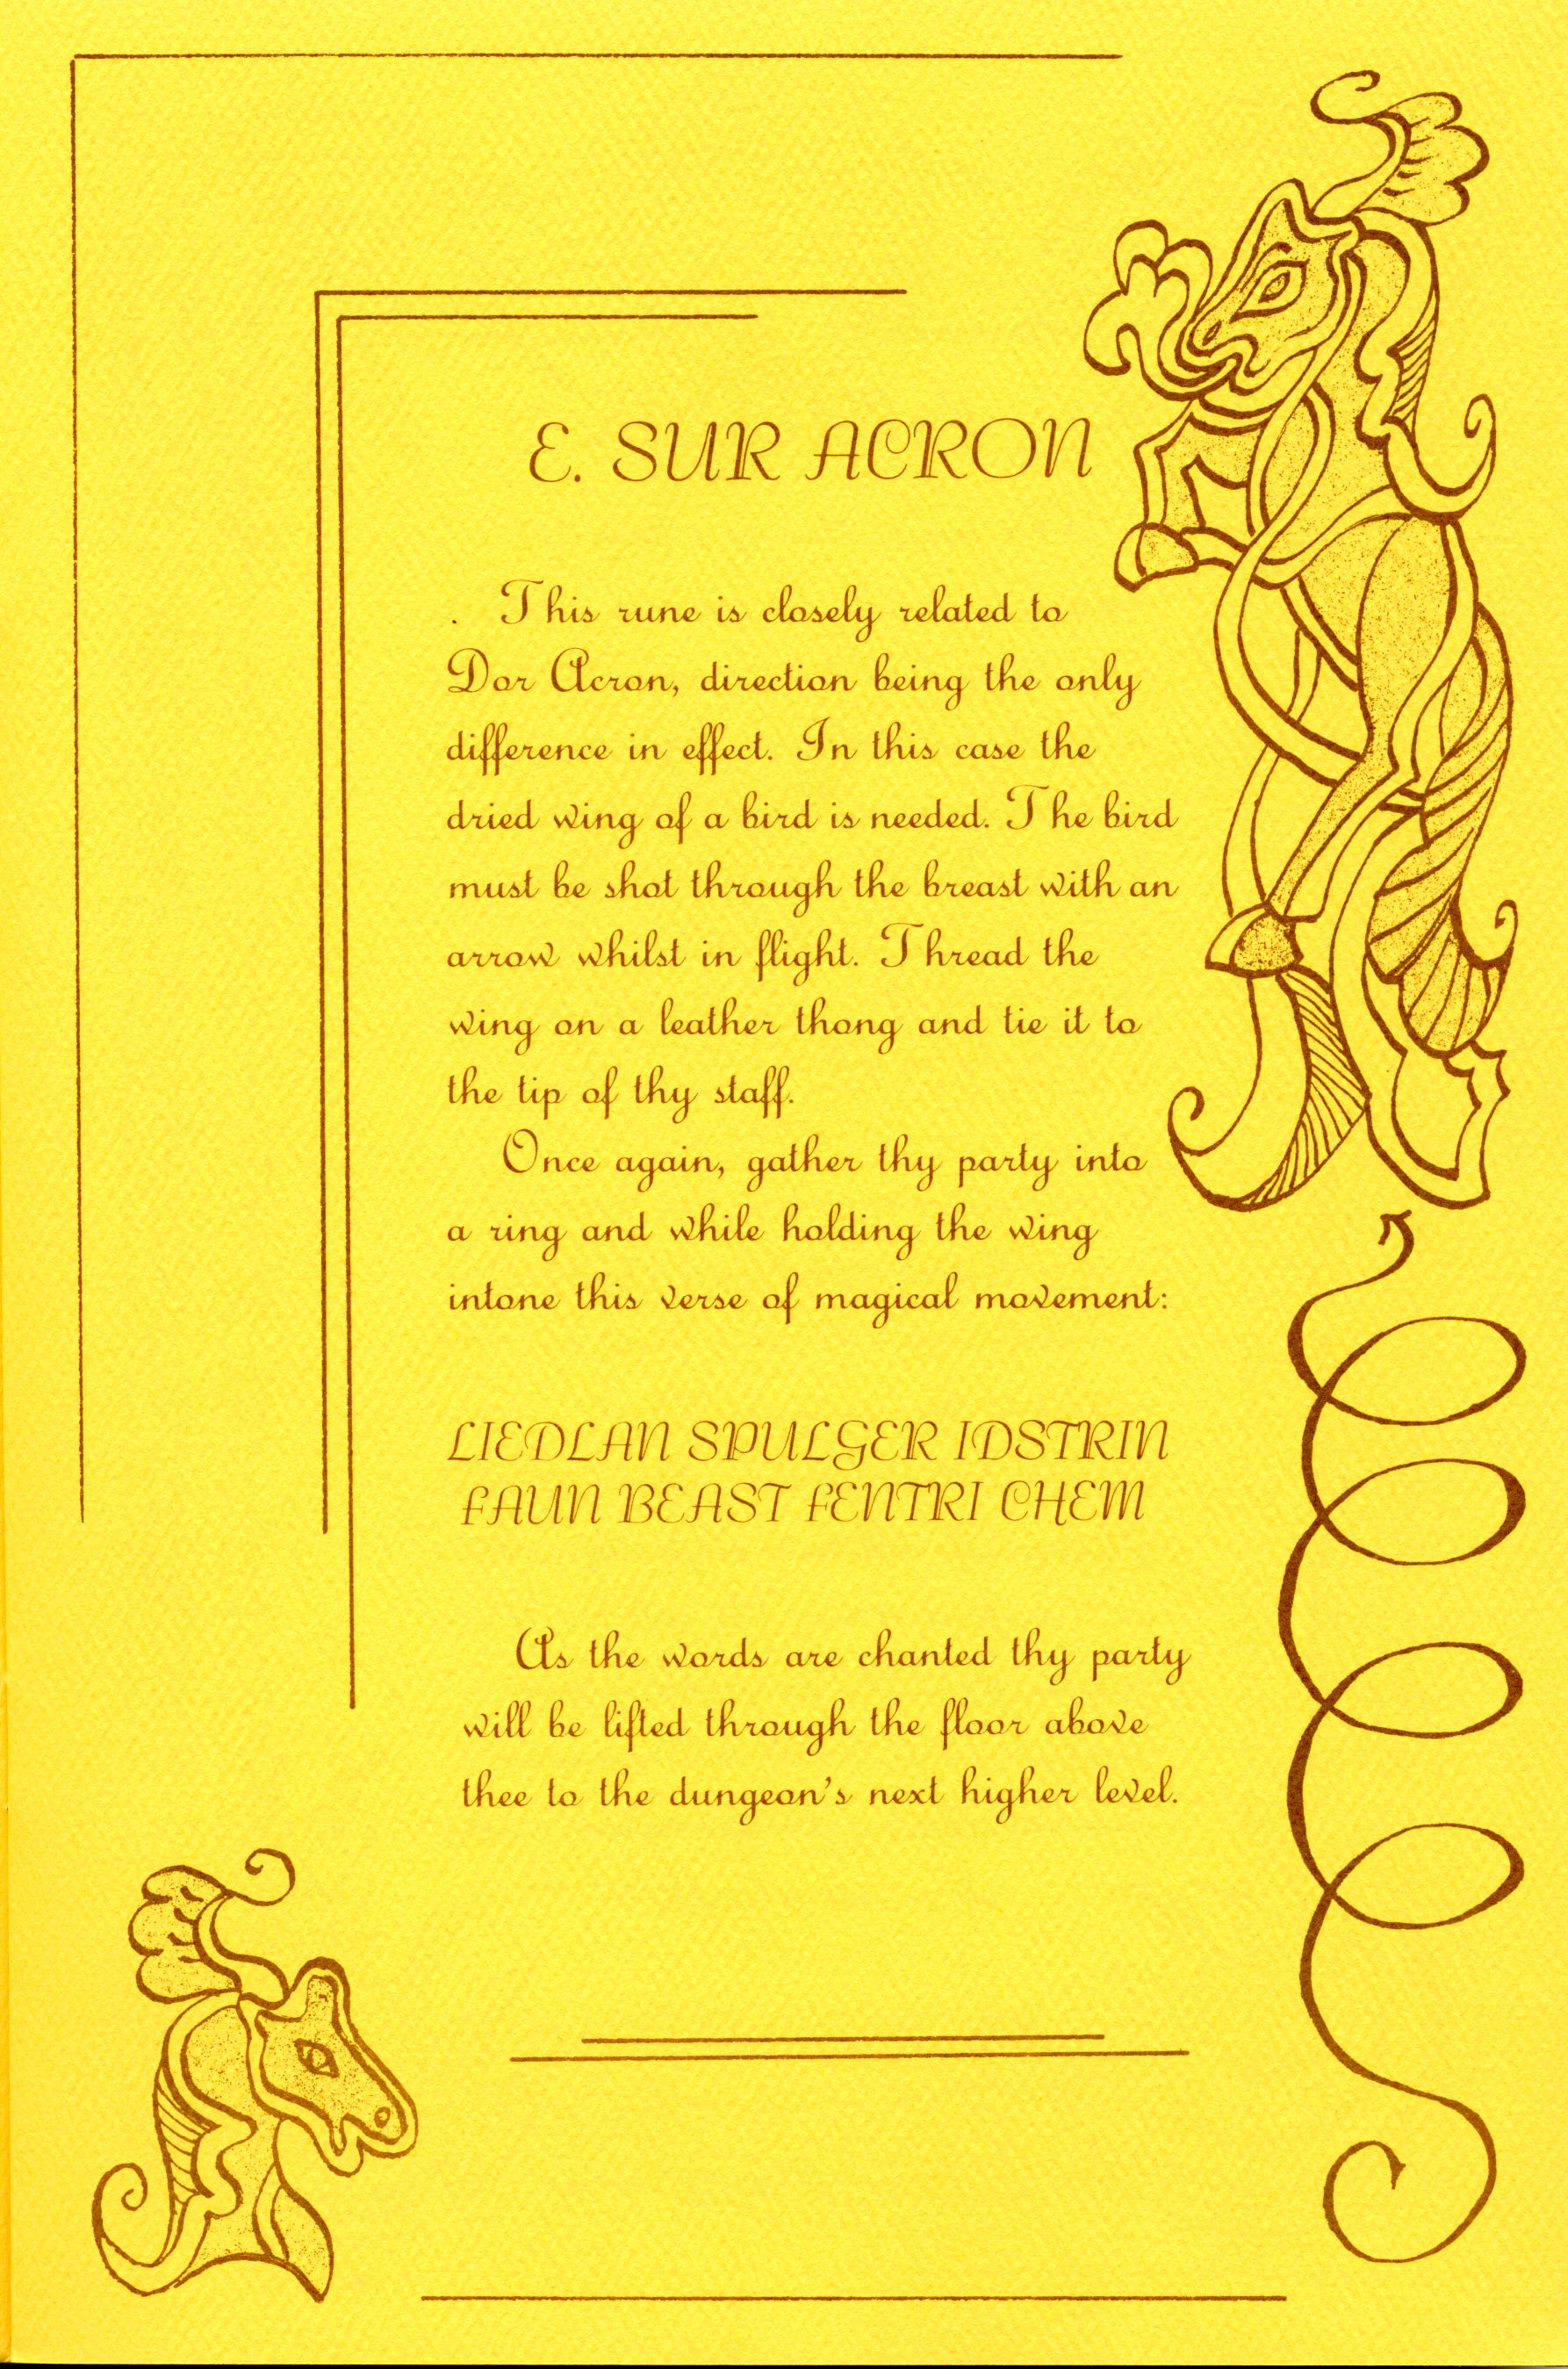 E. SUR ACRON
. This rune is closely related to
Dor Acron, direction being the only
difference in effect. In this case the
dried wing of a bird is needed. The bird
must be shot through the breast with an
arrow whilst in flight. Thread the
wing on a leather thong and tie it to
the tip of thy staff.
Once again, gather thy party into
a ring and while holding the wing
intone this verse of magical movement:
LIEDLAN SPULGER IDSTRIN
FAUN BEAST FENTRI CHEM
As the words are chanted thy party
will be lifted through the floor above
thee to the dungeon's next higher level.